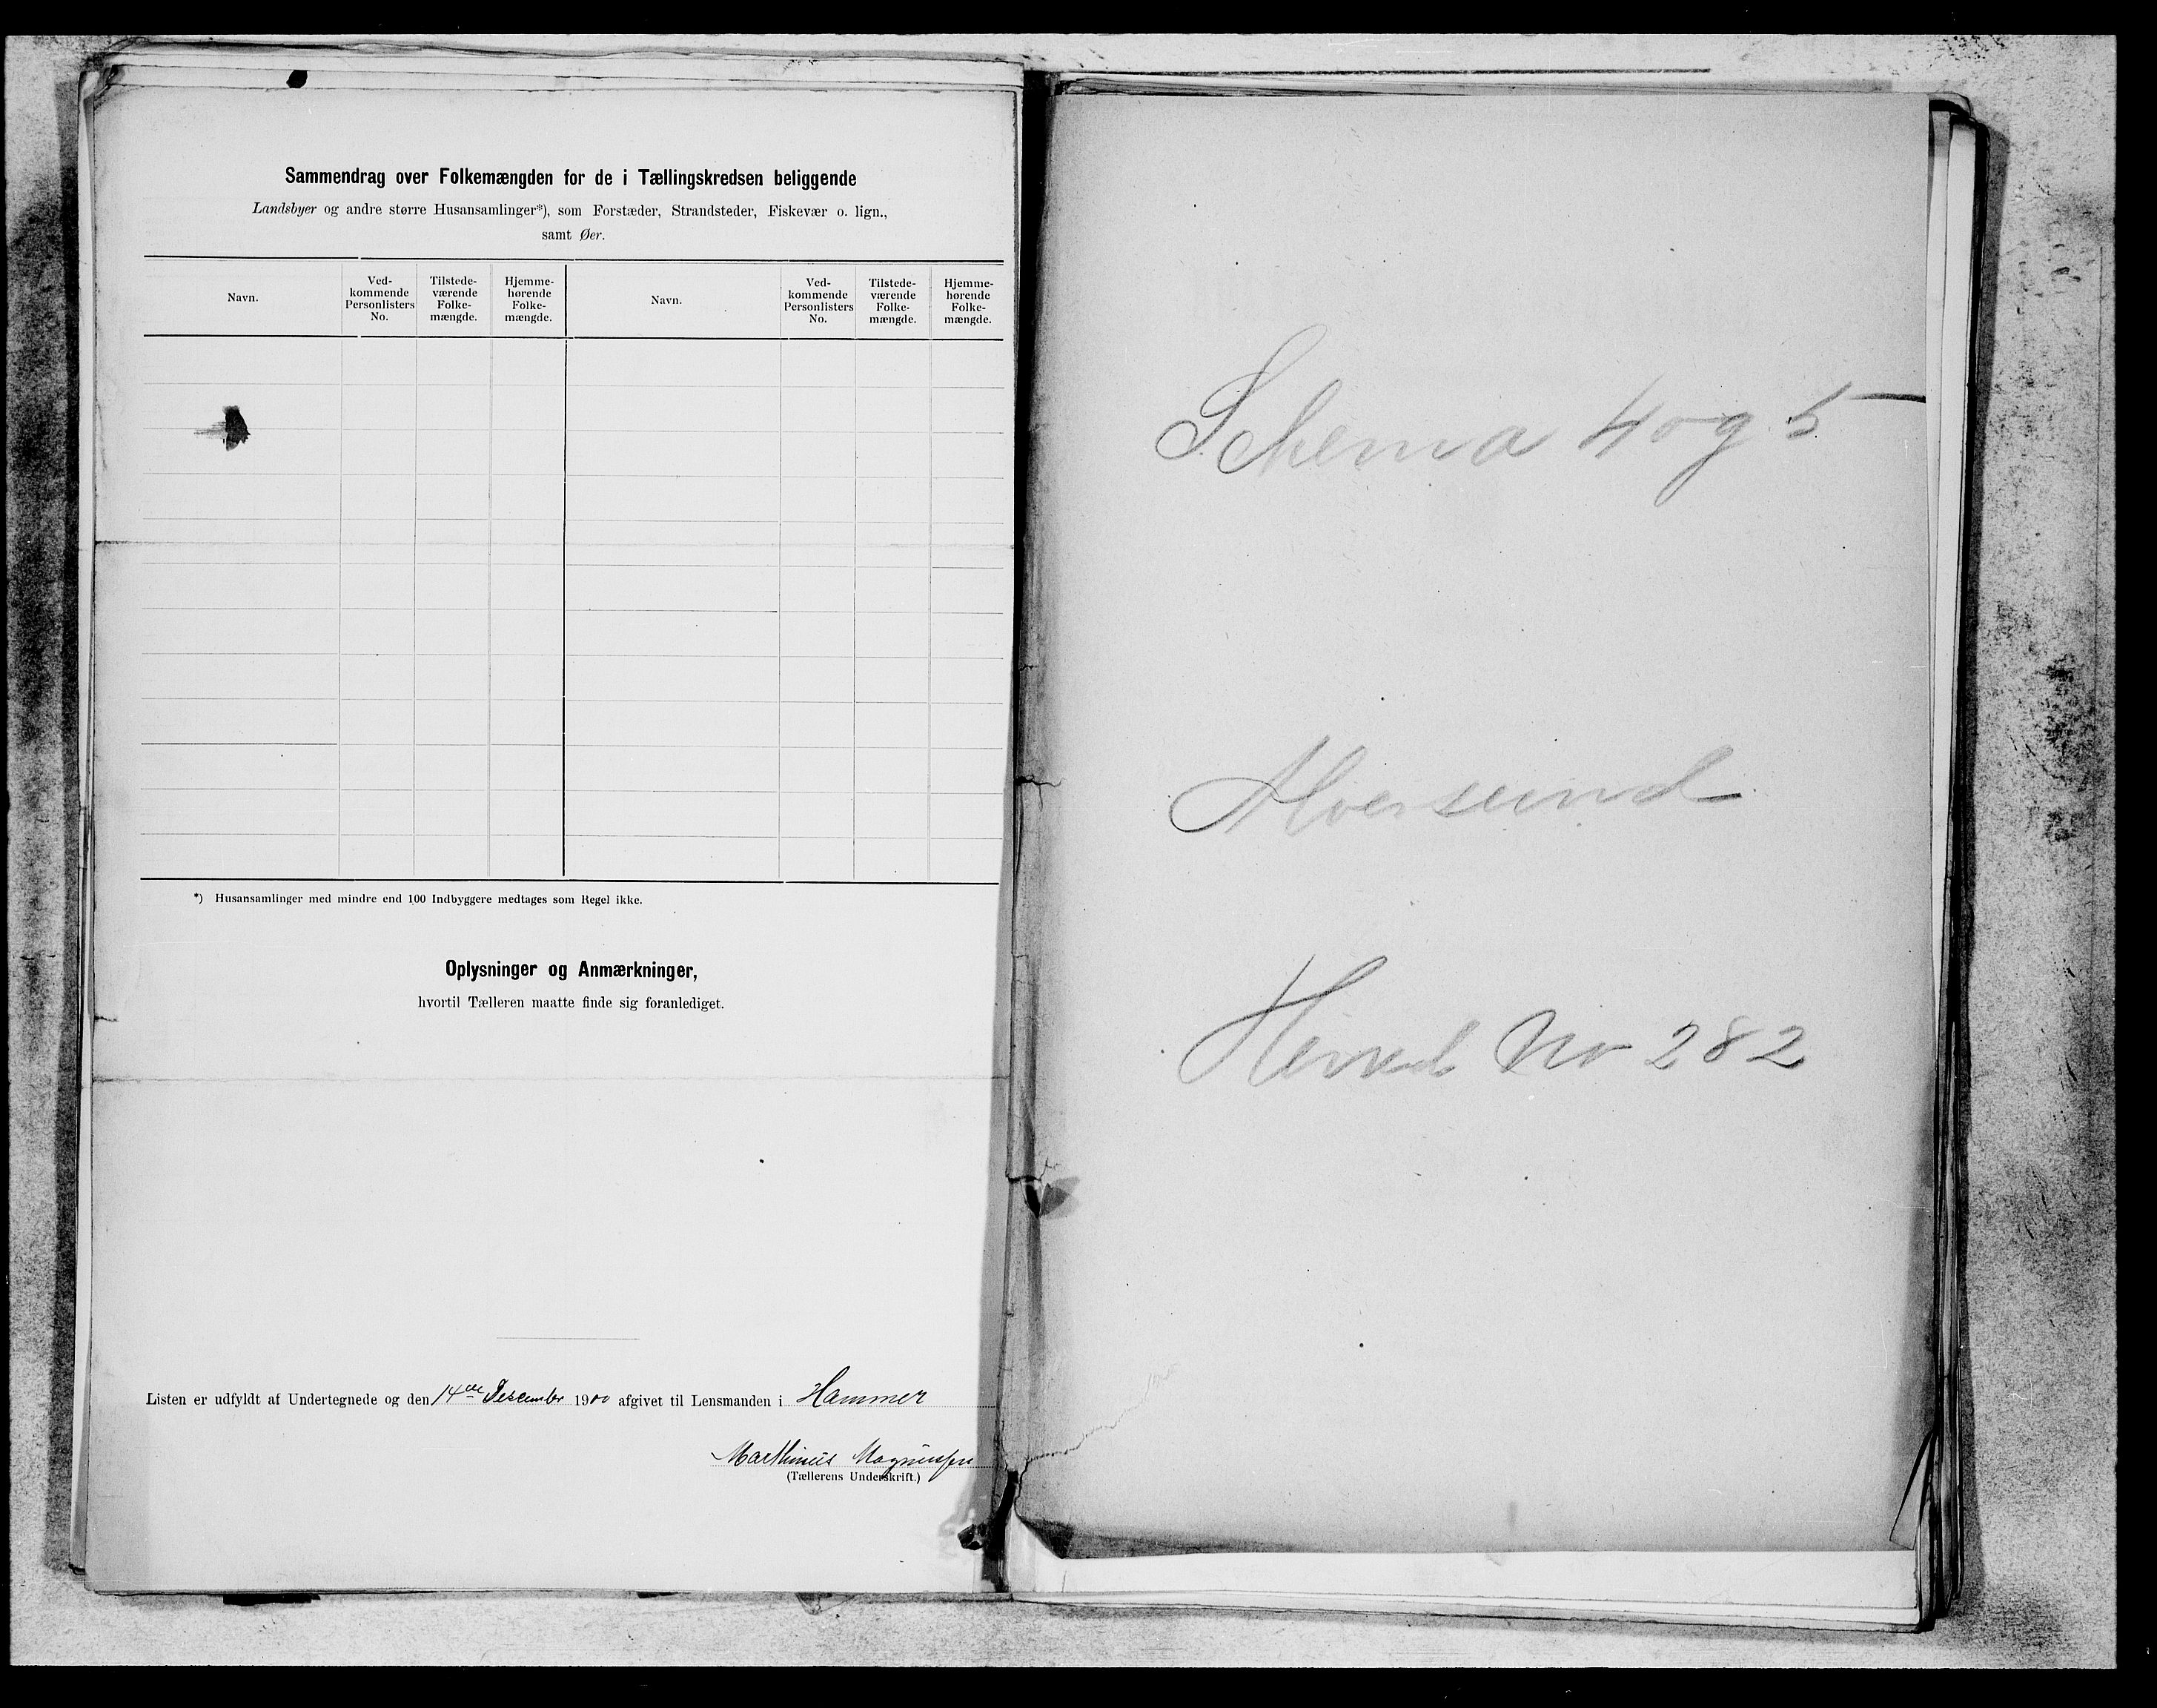 Sammendrag over Folkemængden for de i Tællingskredsen beliggende
Landsbyer og andre større Husansamlinger*), som Forstæder, Strandsteder, Fiskevær o. lign.,
samt Øer.
Navn.
Ved-
kommende
Personlisters
No.
Tilstede-
værende
Folke-
mængde.
Hjemme-
hørende
Folke-
mængde.
Navn.
Ved-
kommende
Personlisters
No.
Tilstede-
værende
Folke-
mængde.
Hjemme-
hørende
Folke-
mængde.
*) Husansamlinger med mindre end 100 Indbyggere medtages som Regel ikke.
Oplysninger og Anmærkninger,
hvortil Tælleren maatte finde sig foranlediget.
Listen er udfyldt af Undertegnede og den 14de Desember 1900 afgivet til Lensmanden i Hammer
Marthinus Magnussen
(Tællerens Underskrift.)
Schema 4 og 5
Alversund
Herred No 282